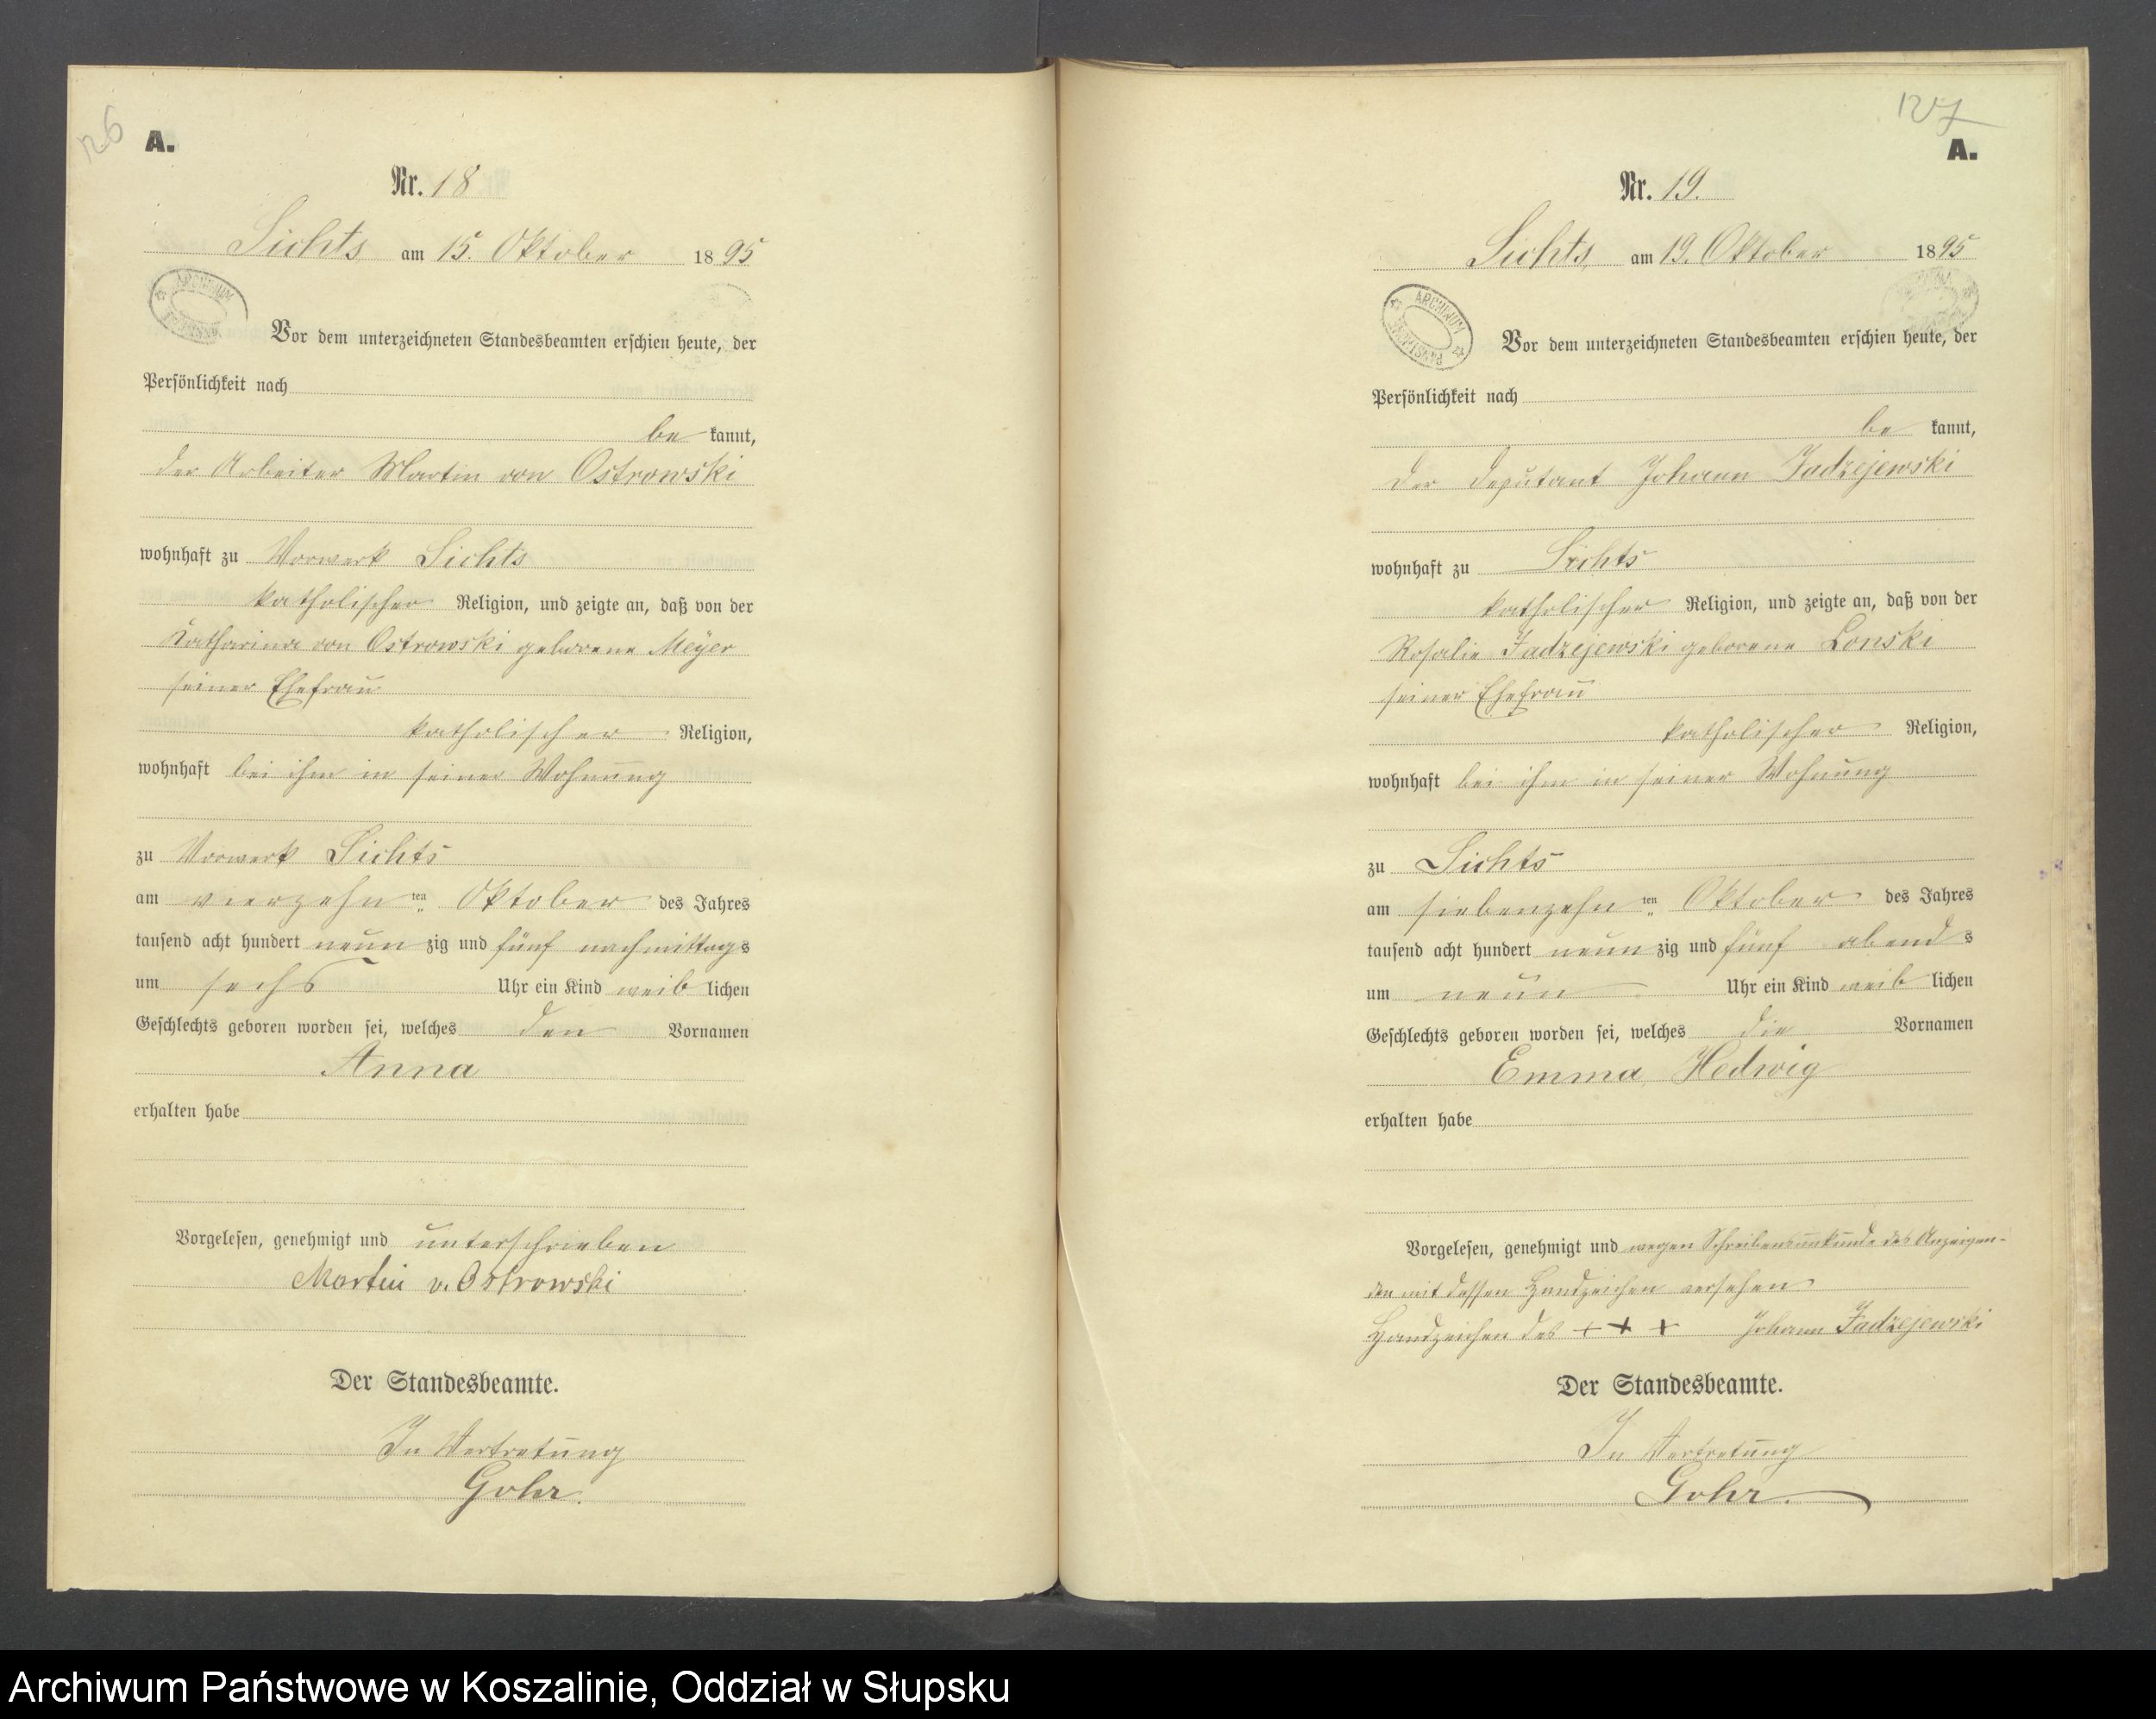 126
A.
Nr. 18
Lichts am 15. Oktober 1895
ARCHIWUM
Vor dem unterzeichneten Standesbeamten erschien heute, der
Persönlichkeit nach
be kannt,
der Arbeiter Martin von Ostrowski
wohnhaft zu Vorwerk Lichts
katholischer Religion, und zeigte an, daß von der
Katharina von Ostrowski geborene Meyer
seiner Ehefrau
katholischer Religion,
wohnhaft bei ihm in seiner Wohnung
zu Vorwerk Lichts
am vierzehn ten Oktober des Jahres
tausend acht hundert neun zig und fünf nachmittags
um sechs Uhr ein Kind weib lichen
Geschlechts geboren worden sei, welches den Vornamen
Anna
erhalten habe
Vorgelesen, genehmigt und unterschrieben
Martin v. Ostrowski
Der Standesbeamte.
In Vertretung
Gohr.
127
A.
Nr. 19.
Lichts, am 19. Oktober 1895
ARCHIWUM
Vor dem unterzeichneten Standesbeamten erschien heute, der
Persönlichkeit nach
be kannt,
der Deputant Johann Jadzejewski
wohnhaft zu Lichts
katholischer Religion, und zeigte an, daß von der
Rosalie Jadzejewski geborene Lonski
seiner Ehefrau
katholischer Religion,
wohnhaft bei ihm in seiner Wohnung
zu Lichts
am siebenzehn ten Oktober des Jahres
tausend acht hundert neun zig und fünf abend s
um neun Uhr ein Kind weib lichen
Geschlechts geboren worden sei, welches die Vornamen
Emma, Hedwig
erhalten habe
Vorgelesen, genehmigt und wegen Schreibensunkunde des Anzeigen-
den mit dessen Handzeichen versehen
Handzeichen des + + + Johann Jadzejewski
Der Standesbeamte.
In Vertretung
Gohr.
Archiwum Państwowe w Koszalinie, Oddział w Słupsku